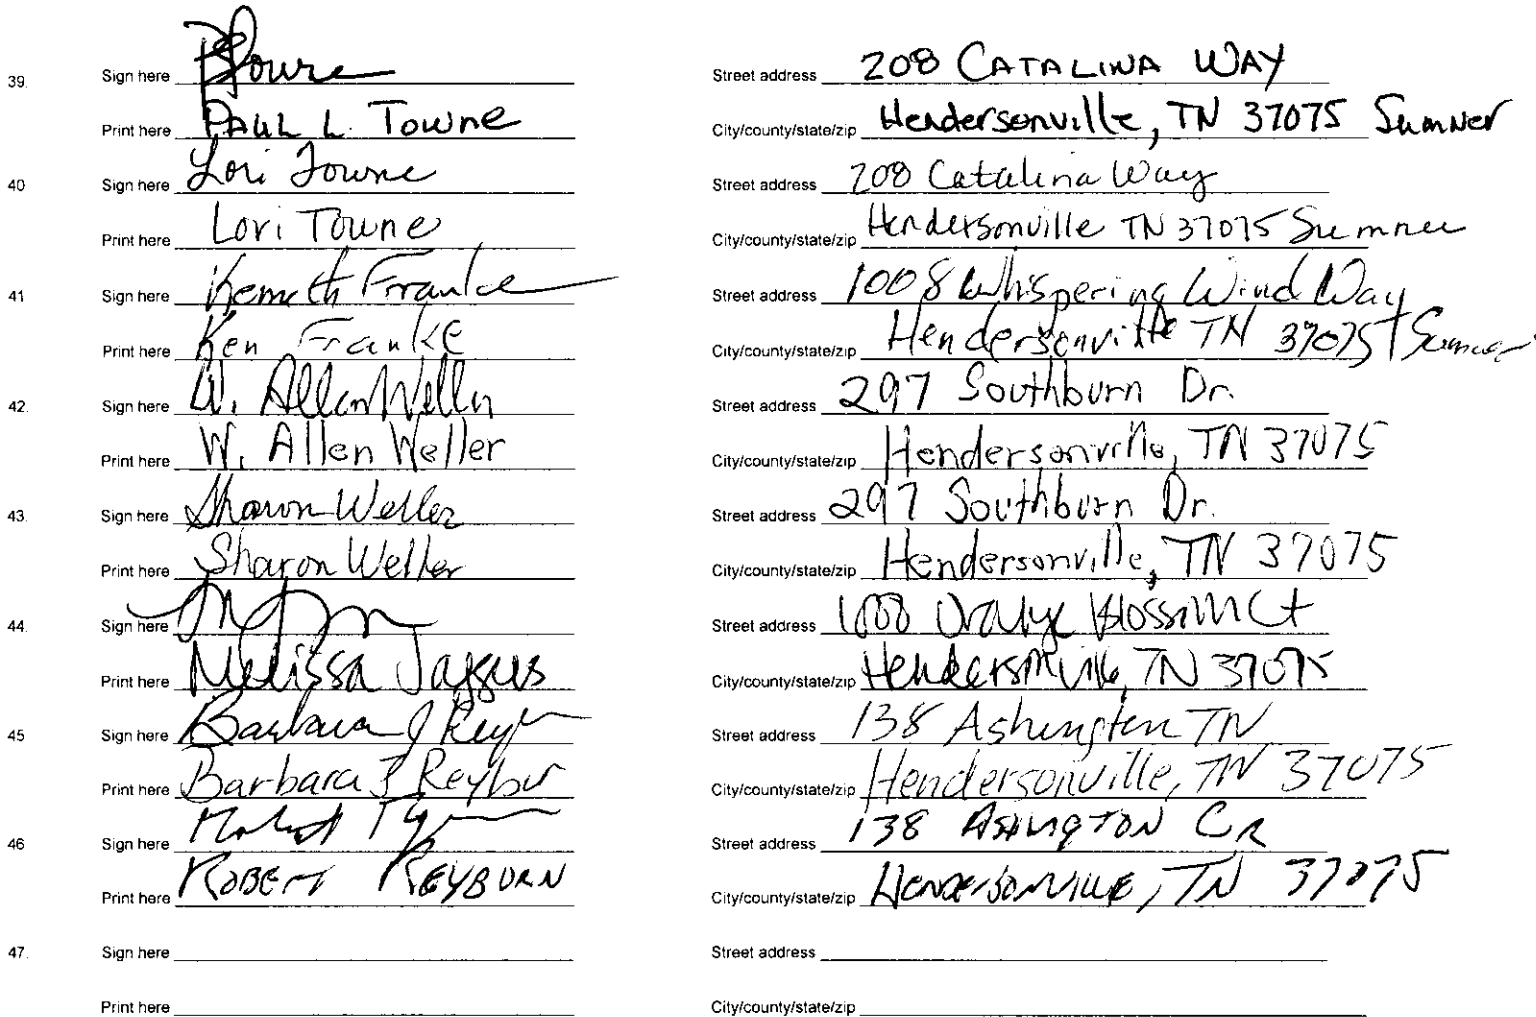 39. Sign here P Towne Street address 208 CATALINA WAY
Print here PAUL L. TOWNE City/county/state/zip Hendersonville, TN 37075 Sumner
40 Sign here Lori Towne Street address 208 Catalina Way
Print here Lori Towne City/county/state/zip Hendersonville TN 37075 Sumner
41 Sign here Kenneth Franke Street address 1008 Whispering Wind Way
Print here Ken Franke City/county/state/zip Hendersonville TN 37075 Sumner
42. Sign here W. Allen Weller Street address 297 Southburn Dr.
Print here W. Allen Weller City/county/state/zip Hendersonville, TN 37075
43. Sign here Sharon Weller Street address 297 Southburn Dr.
Print here Sharon Weller City/county/state/zip Hendersonville, TN 37075
44. Sign here Street address Orange Blossom Ct
Print here Melissa City/county/state/zip Hendersonville, TN 37075
45 Sign here Barbara J Street address 138 Ashington
Print here Barbara J City/county/state/zip Hendersonville, TN 37075
46 Sign here Robert Street address 138 ASHINGTON CR
Print here ROBERT REYBURN City/county/state/zip HENDERSONVILLE, TN 37075
47. Sign here Street address
Print here City/county/state/zip